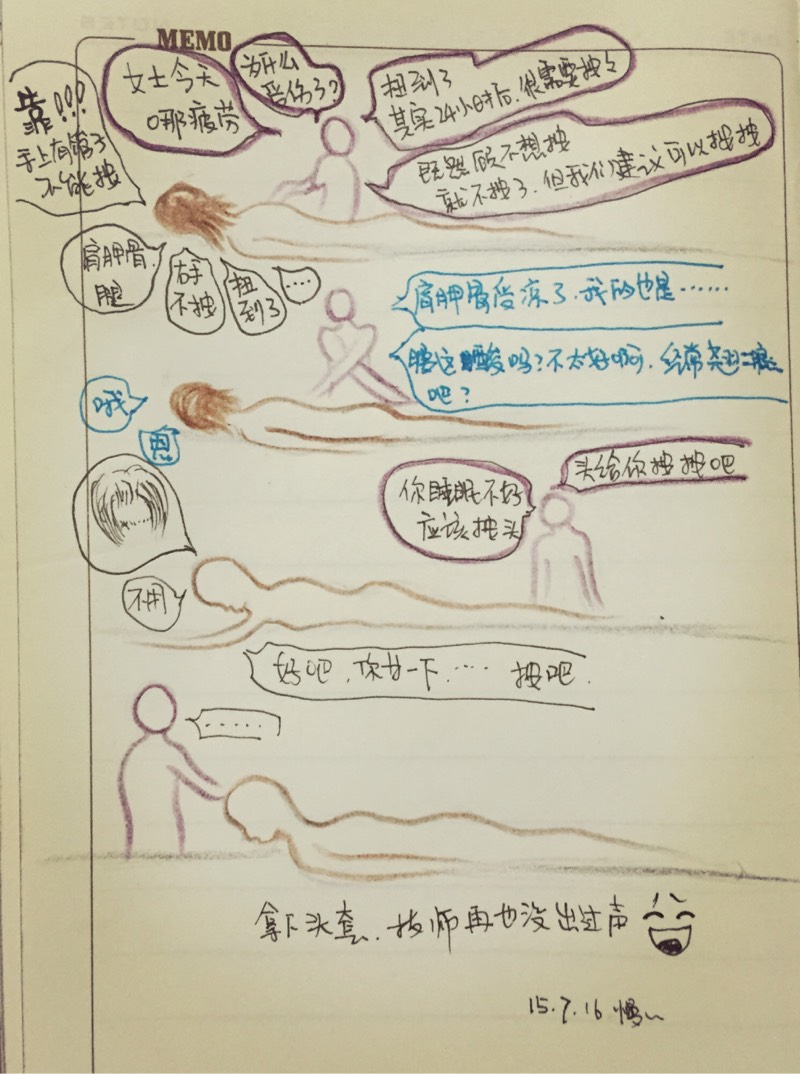 MEMO
女士今天
哪疲劳
为什么
受伤了?
扭到了
其实24小时后,很需要按的
既然顾不想按
就不按了,但我们建议可以按按
靠!!!
手上有
不能按
肩胛骨.
腿
右手
不按
扭
到了
....
肩胛骨受凉了.我的也是……
腿这酸吗?不太好啊.经常翘二郎腿
吧?
哦
恩
头给你按按吧
你睡眠不好
应该按头
不用
好吧.你等一下.…. 按吧.
......
拿下头套.技师再也没出过声
15.7.16